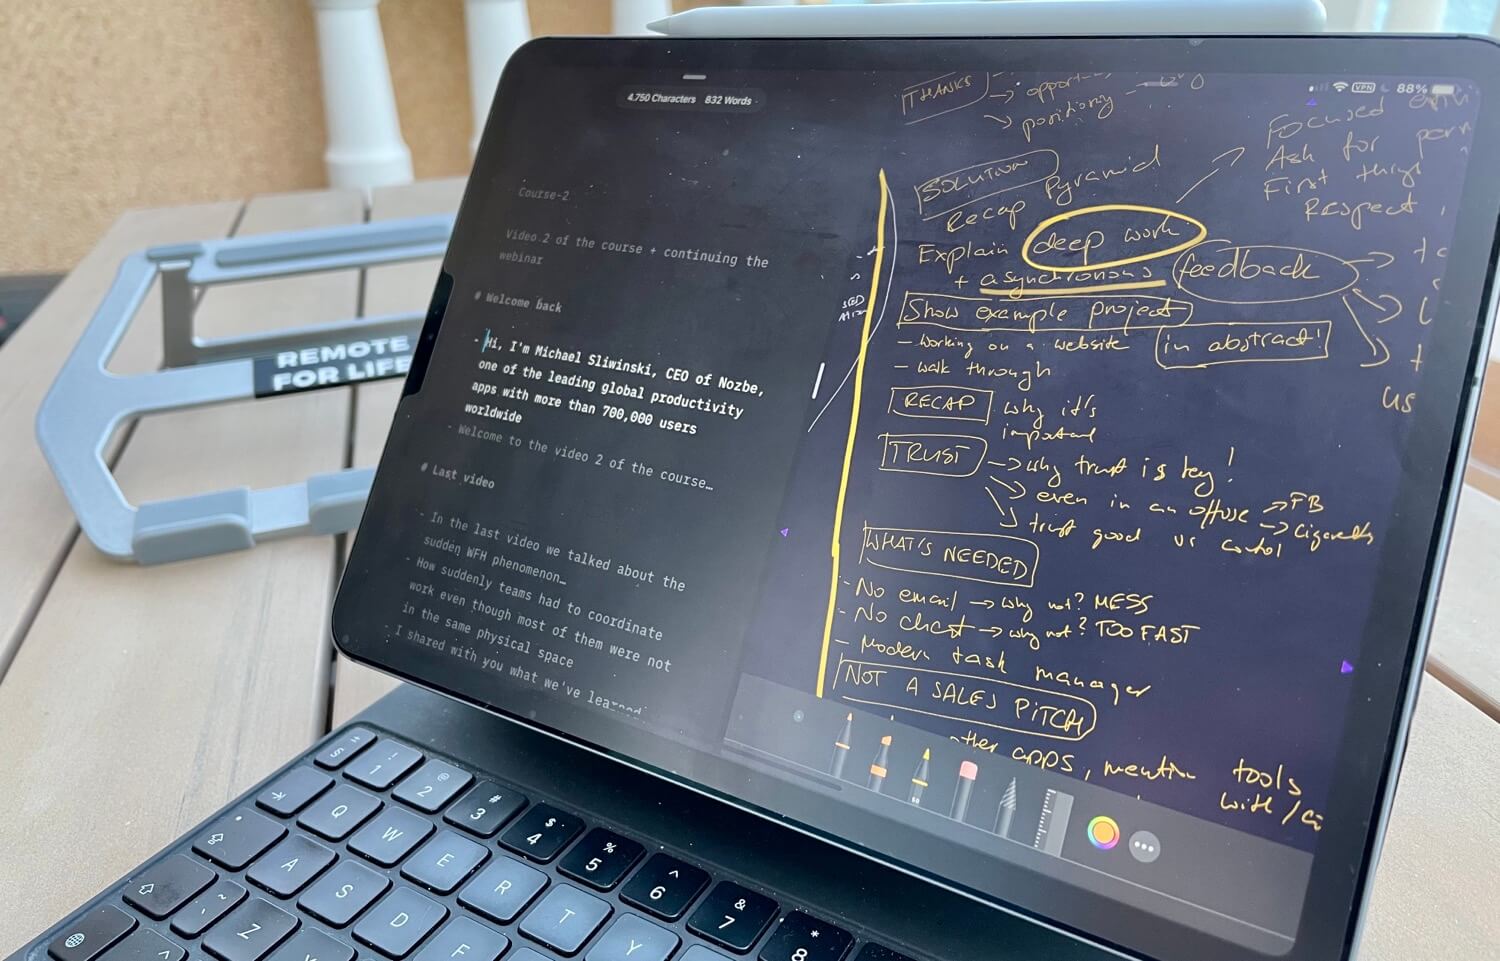 4.750 Characters 832 Words
Course-2
Video 2 of the course + continuing the
webinar
# Welcome back
- Hi, I'm Michael Sliwinski, CEO of Nozbe,
one of the leading global productivity
apps with more than 700,000 users
worldwide
- Welcome to the video 2 of the course…
# Last video
- In the last video we talked about the
sudden WFH phenomenon…
- How suddenly teams had to coordinate
work even though most of them were not
in the same physical space
- I shared with you what we've learned
VPN 88%
THANKS
positioning
Focused
Ask for
First things
Respect
SOLUTION
Recap Pyramid
Explain deep work
+ asynchronous feedback
Show example project
- working on a website in abstract!
- walk through
us
RECAP why it's
important
TRUST → why trust is key!
→ even in an office → FB
→ trust good vs control → cigarettes
WHAT'S NEEDED
- No email → why not? MESS
- No chat → why not? TOO FAST
- Modern task manager
NOT A SALES PITCH
apps, mention tools
with/
50
REMOTE
FOR LIFE
§ ±
1 !
2 @
3 #
4 $
5 %
6 ^
7 &
8 *
Q W E R T Y
A S D F
Z